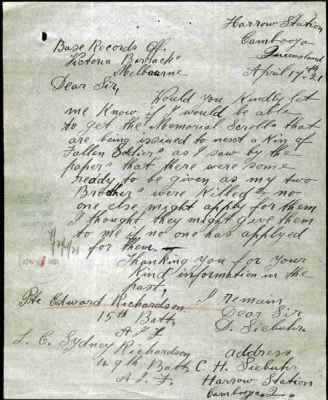 Harrow Station
Cambooya
Queensland
April 17th 21
Base Records Off.
Victoria Barracks
Melbourne
Dear Sir,
Would you Kindly let
me Know if I would be able
to get the Memorial Scrolls that
are being issued to next a Kin of
Fallen Soldiers as I saw by the
papers that there were some
ready to be given as my two
Brothers were Killed & no
one else might apply for them
I thought they might give them
to me if no one has applyed
for them.
Thanking you for your
Kind information in the
past,
I remain
Dear Sir
D. Siebuhr.
Pte Edward Richardson
15th Batt,
A.I.F
L. C. Sydney Richardson
49th Batt
A.I.F.
address
C. H. Siebuhr
Harrow Station
Cambooya Q.